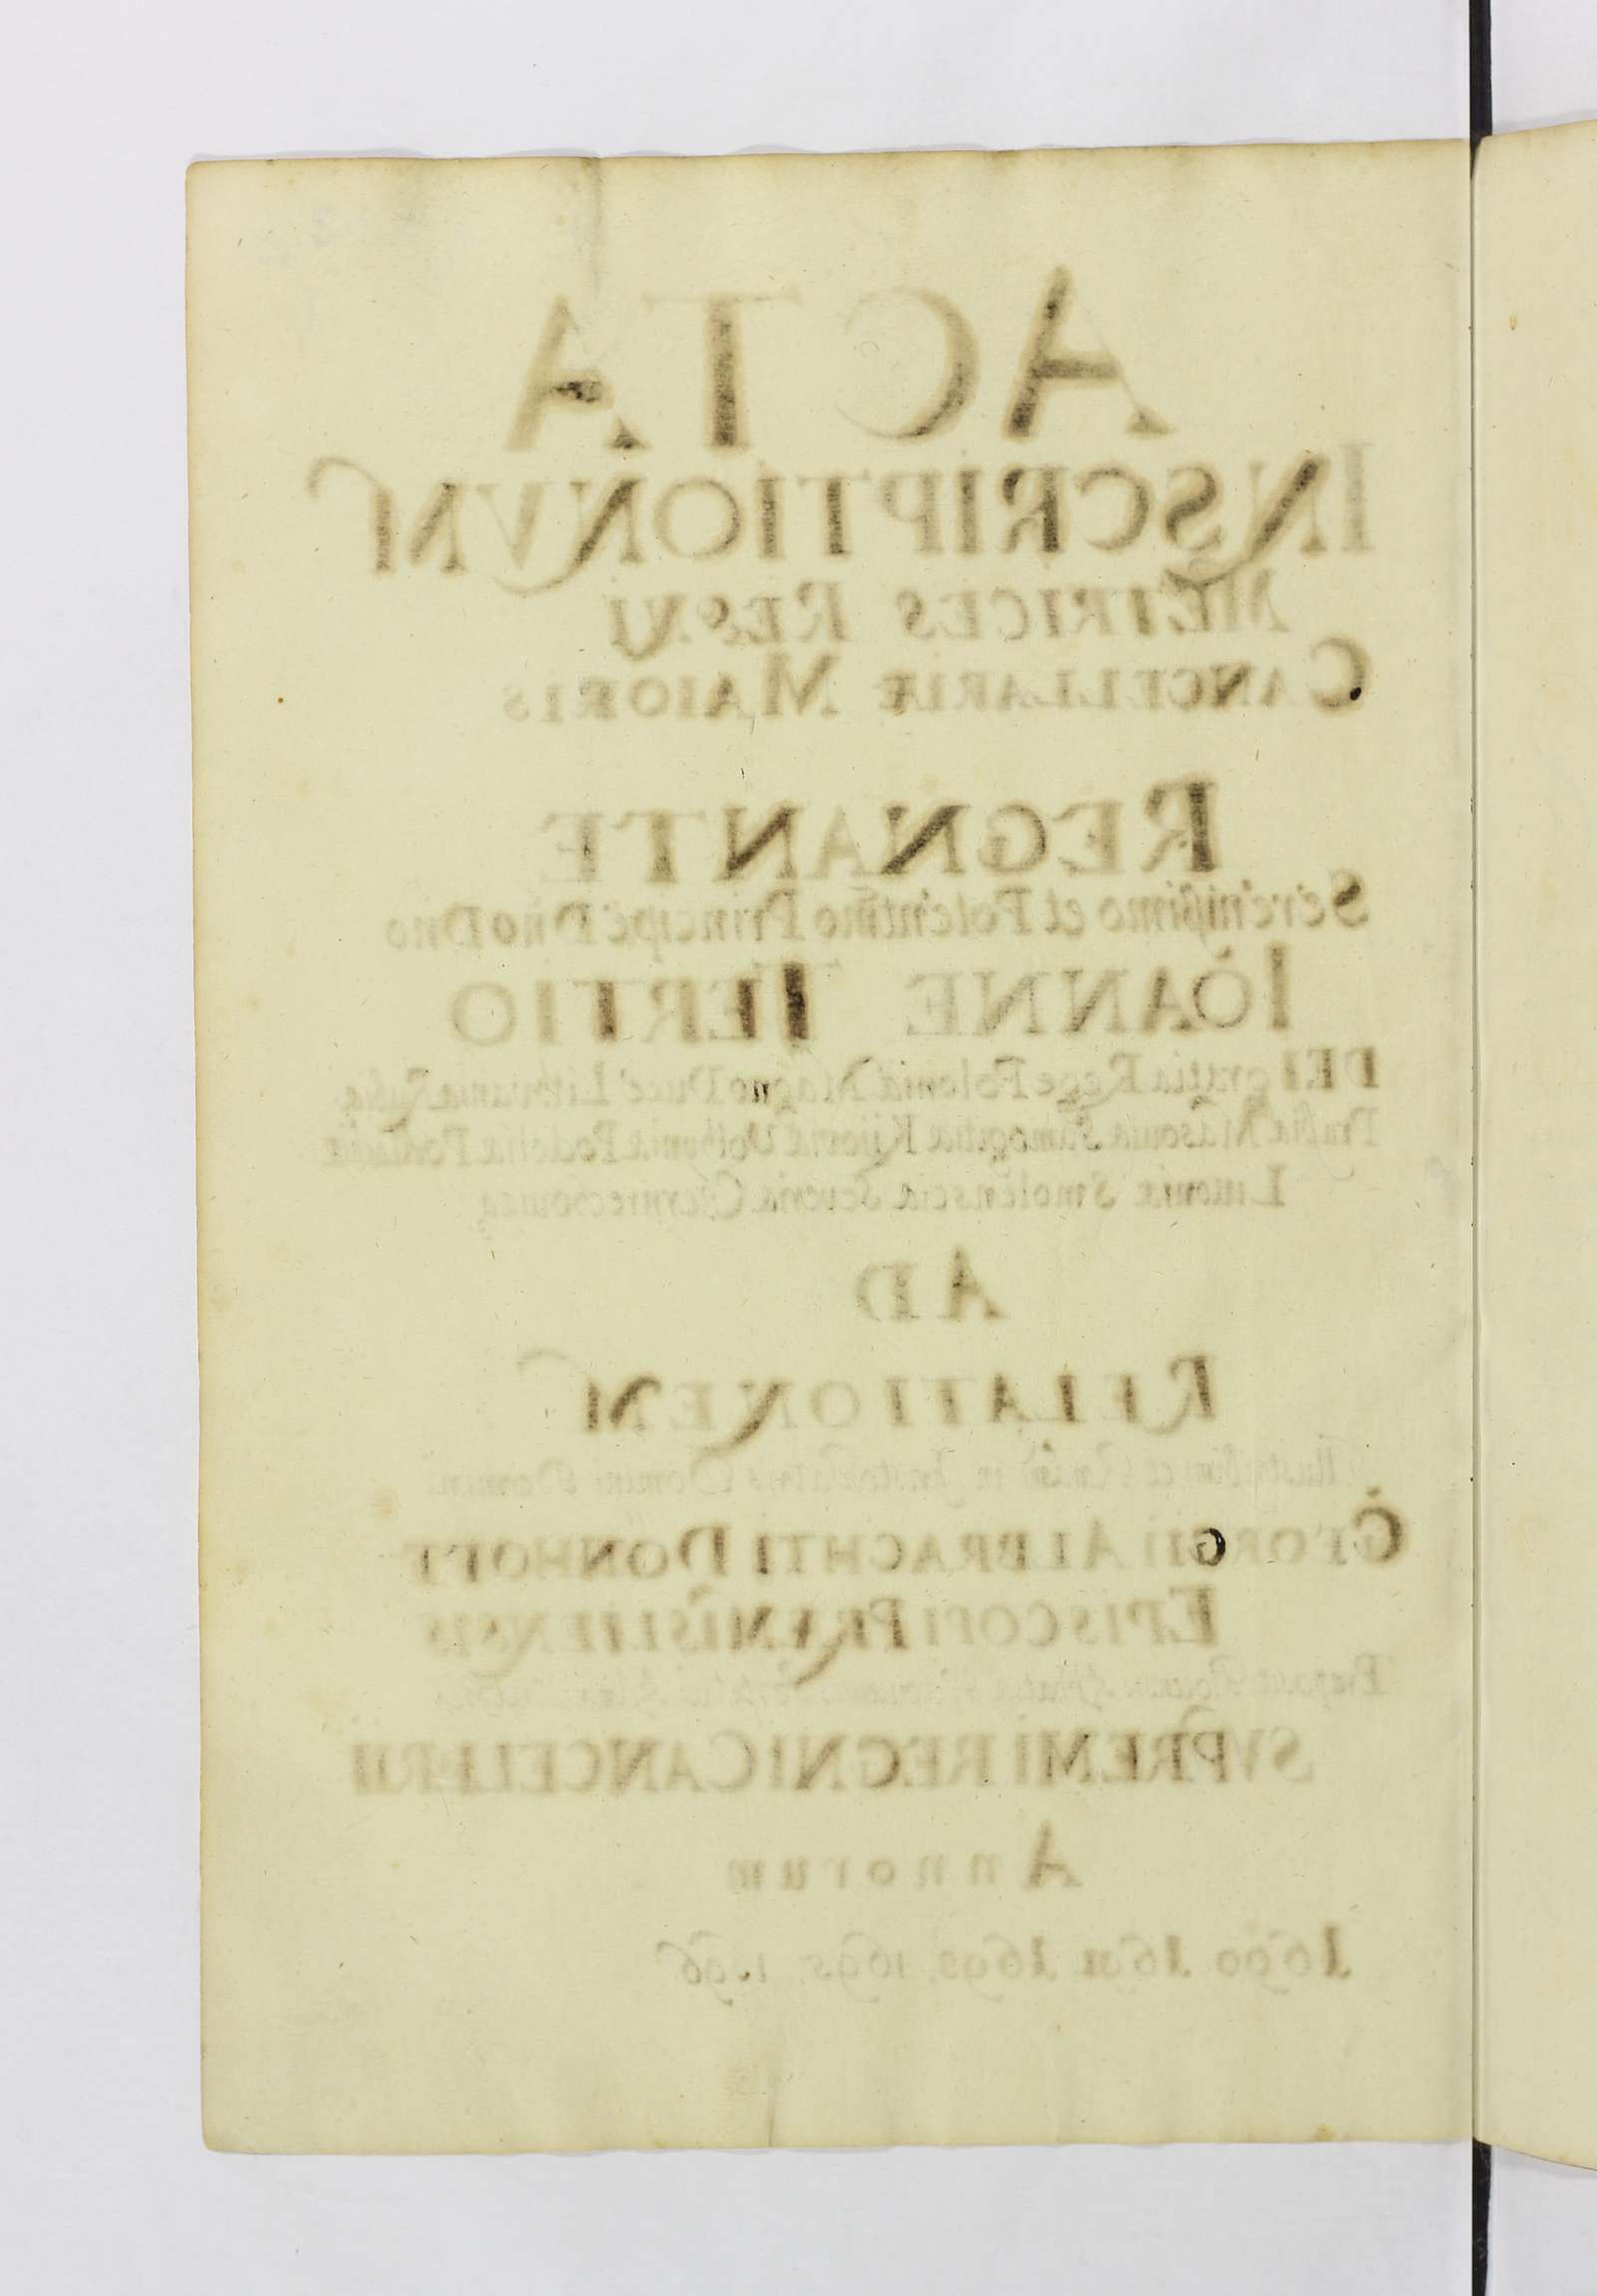 ACTA
INSCRIPTIONVM
METRICES REGNI
CANCELLARIÆ MAIORIS
REGNANTE
Serenißimo et Potentmo Principe Dno Dno
IOANNE TERTIO
DEI gratia Rege Poloniæ Magno Duce Lithvaniæ Rußiæ
Prußiæ Masouiæ Samogitiæ Kijouiæ Volhyniæ Podoliæ Podlachiæ
Liuoniæ Smolensciæ Seueriæ Czerniechouiæq
AD
RELATIONEM
Illustrißimi et Rndmi in Christo Patris Domini Domini
GEORGII ALBRACHTI DONHOFF
EPISCOPI PRÆMISLIENSIS
SVPREMI REGNI CANCELLERII
Annorum
1690 1691 1692 1695 1696